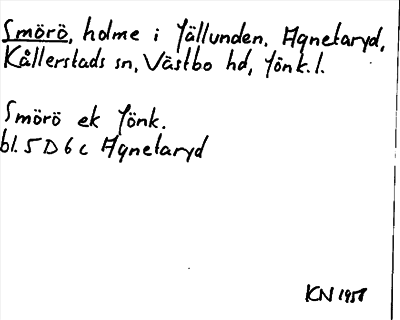 Smörö, holme i Jällunden. Agnetaryd,
Kållerstads sn, Västbo hd, Jönk. l.
Smörö ek Jönk.
bl. 5 D 6 c Agnetaryd
KN 1958